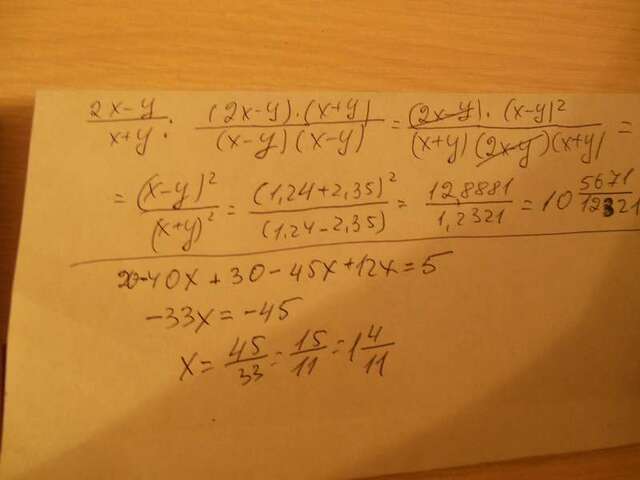 (2x-y)/(x+y) : ((2x-y)·(x+y))/((x-y)(x-y)) = ((2x-y)·(x-y)²)/((x+y)(2x-y)(x+y)) =
= (x-y)²/(x+y)² = (1,24+2,35)²/(1,24-2,35) = 12,8881/1,2321 = 10 5671/12321
20-40x+30-45x+12x=5
-33x=-45
x= 45/33 = 15/11 = 1 4/11